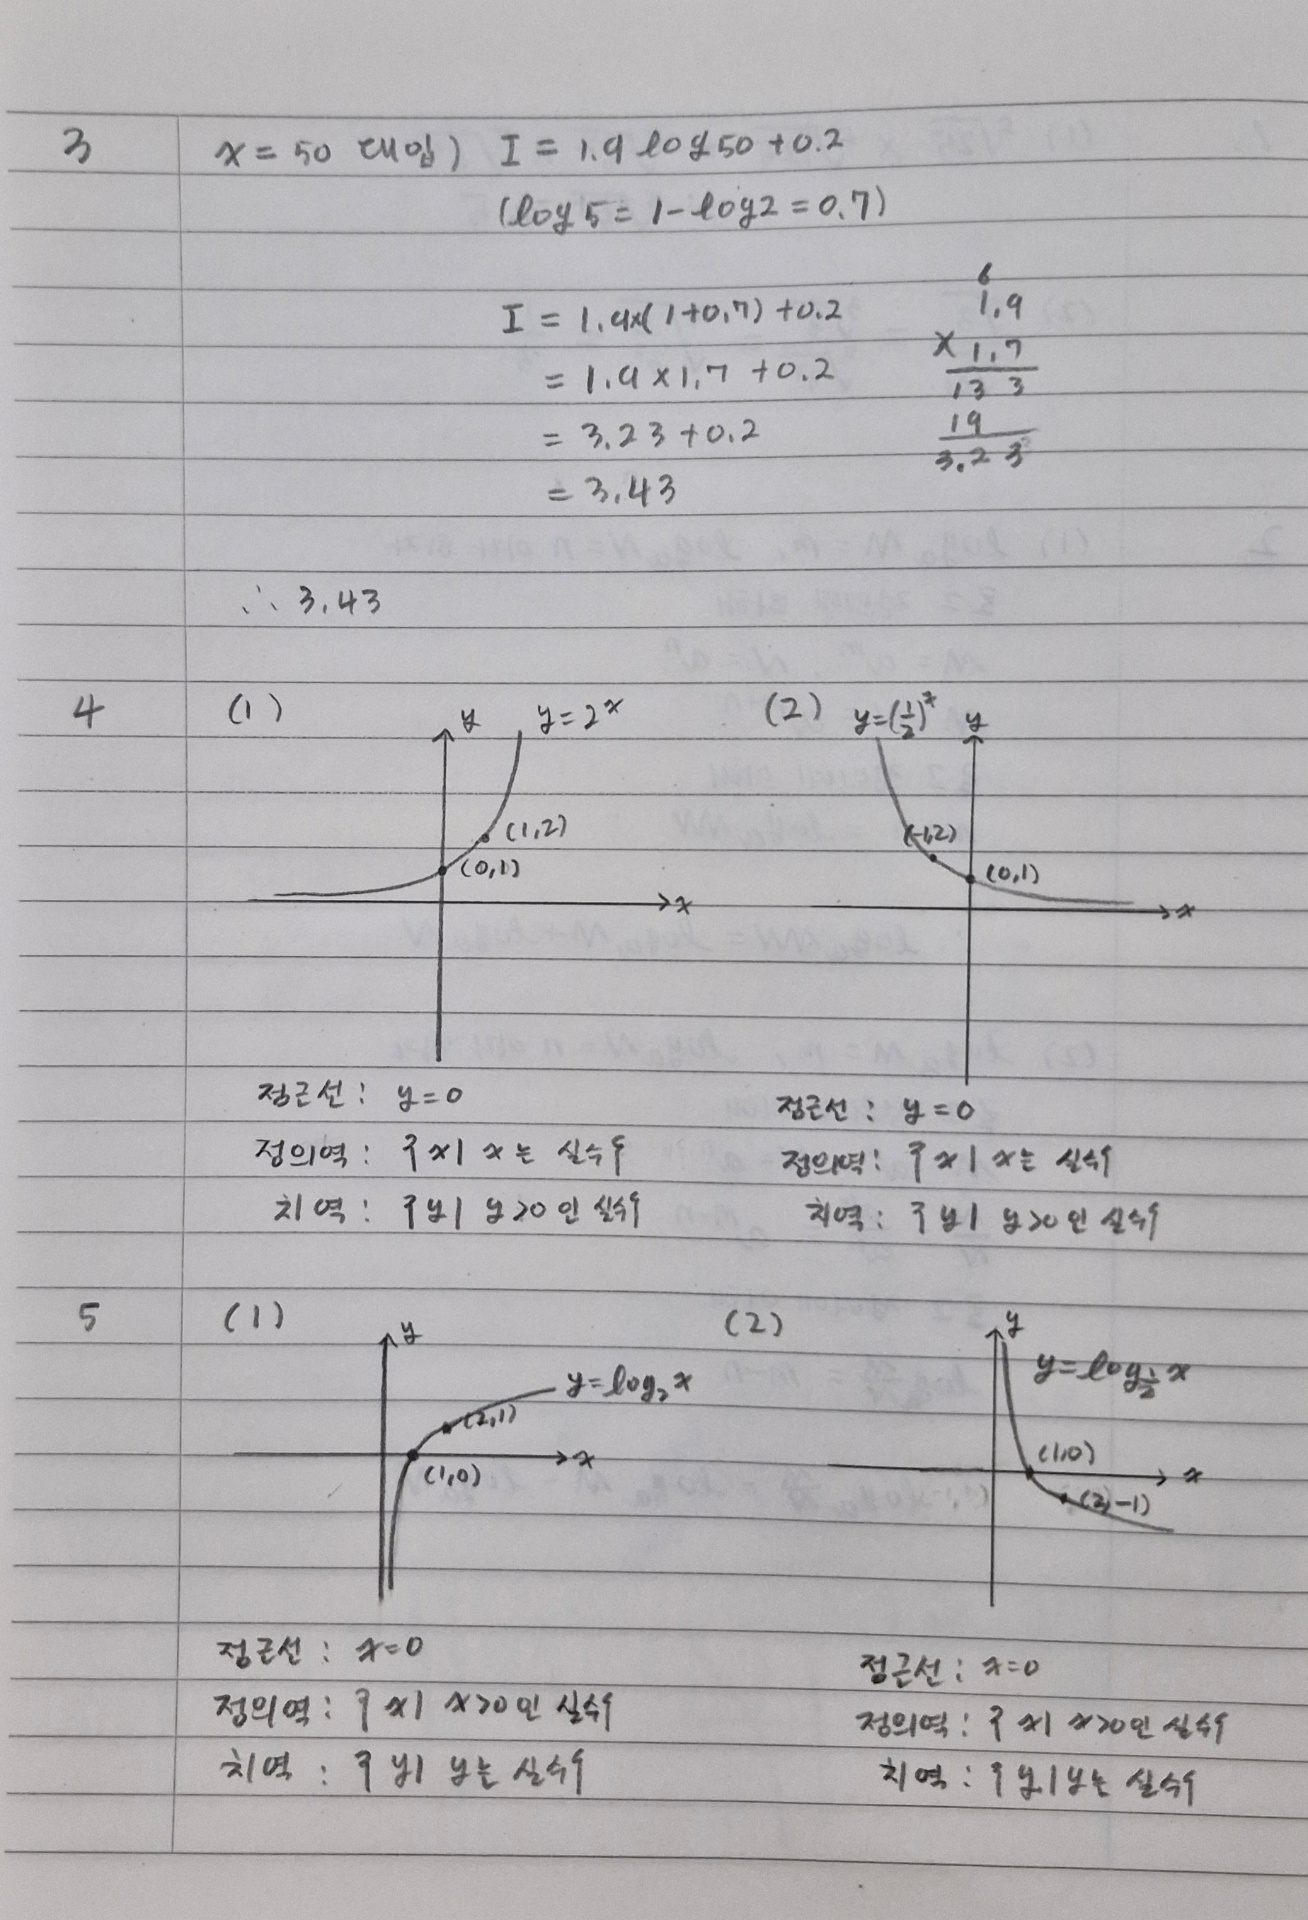 3
x = 50 대입) I = 1.9 log 50 + 0.2
(log 5 = 1 - log 2 = 0.7)
I = 1.9×(1+0.7) + 0.2
= 1.9 × 1.7 + 0.2
= 3.23 + 0.2
= 3.43
6
1.9
× 1.7
13 3
19
3.23
∴ 3.43
4
(1)
y
y = 2^x
(1,2)
(0,1)
x
점근선 : y = 0
정의역 : {x| x는 실수}
치역 : {y| y>0 인 실수}
(2)
y = (1/2)^x
y
(-1,2)
(0,1)
x
점근선 : y = 0
정의역 : {x| x는 실수}
치역 : {y| y>0 인 실수}
5
(1)
y
y = log₂ x
(2,1)
(1,0)
x
점근선 : x = 0
정의역 : {x| x>0 인 실수}
치역 : {y| y는 실수}
(2)
y
y = log_{1/2} x
(1,0)
x
(2,-1)
점근선 : x = 0
정의역 : {x| x>0 인 실수}
치역 : {y| y는 실수}